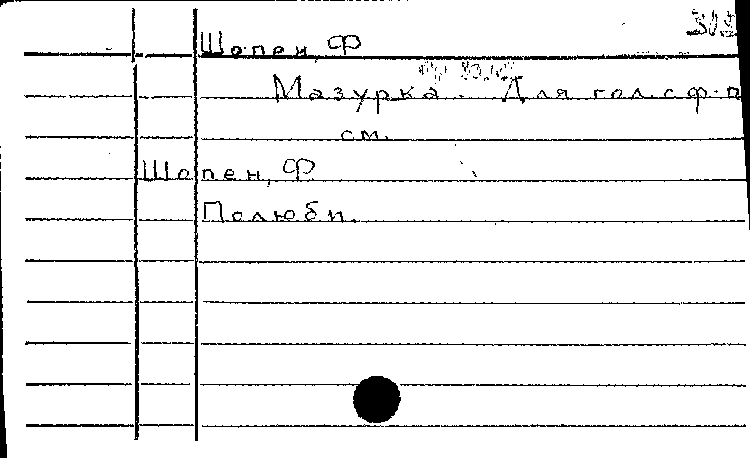 Шопен, Ф
Мазурка. Для гол. с ф-п
см.
Шопен, Ф
Полюби.